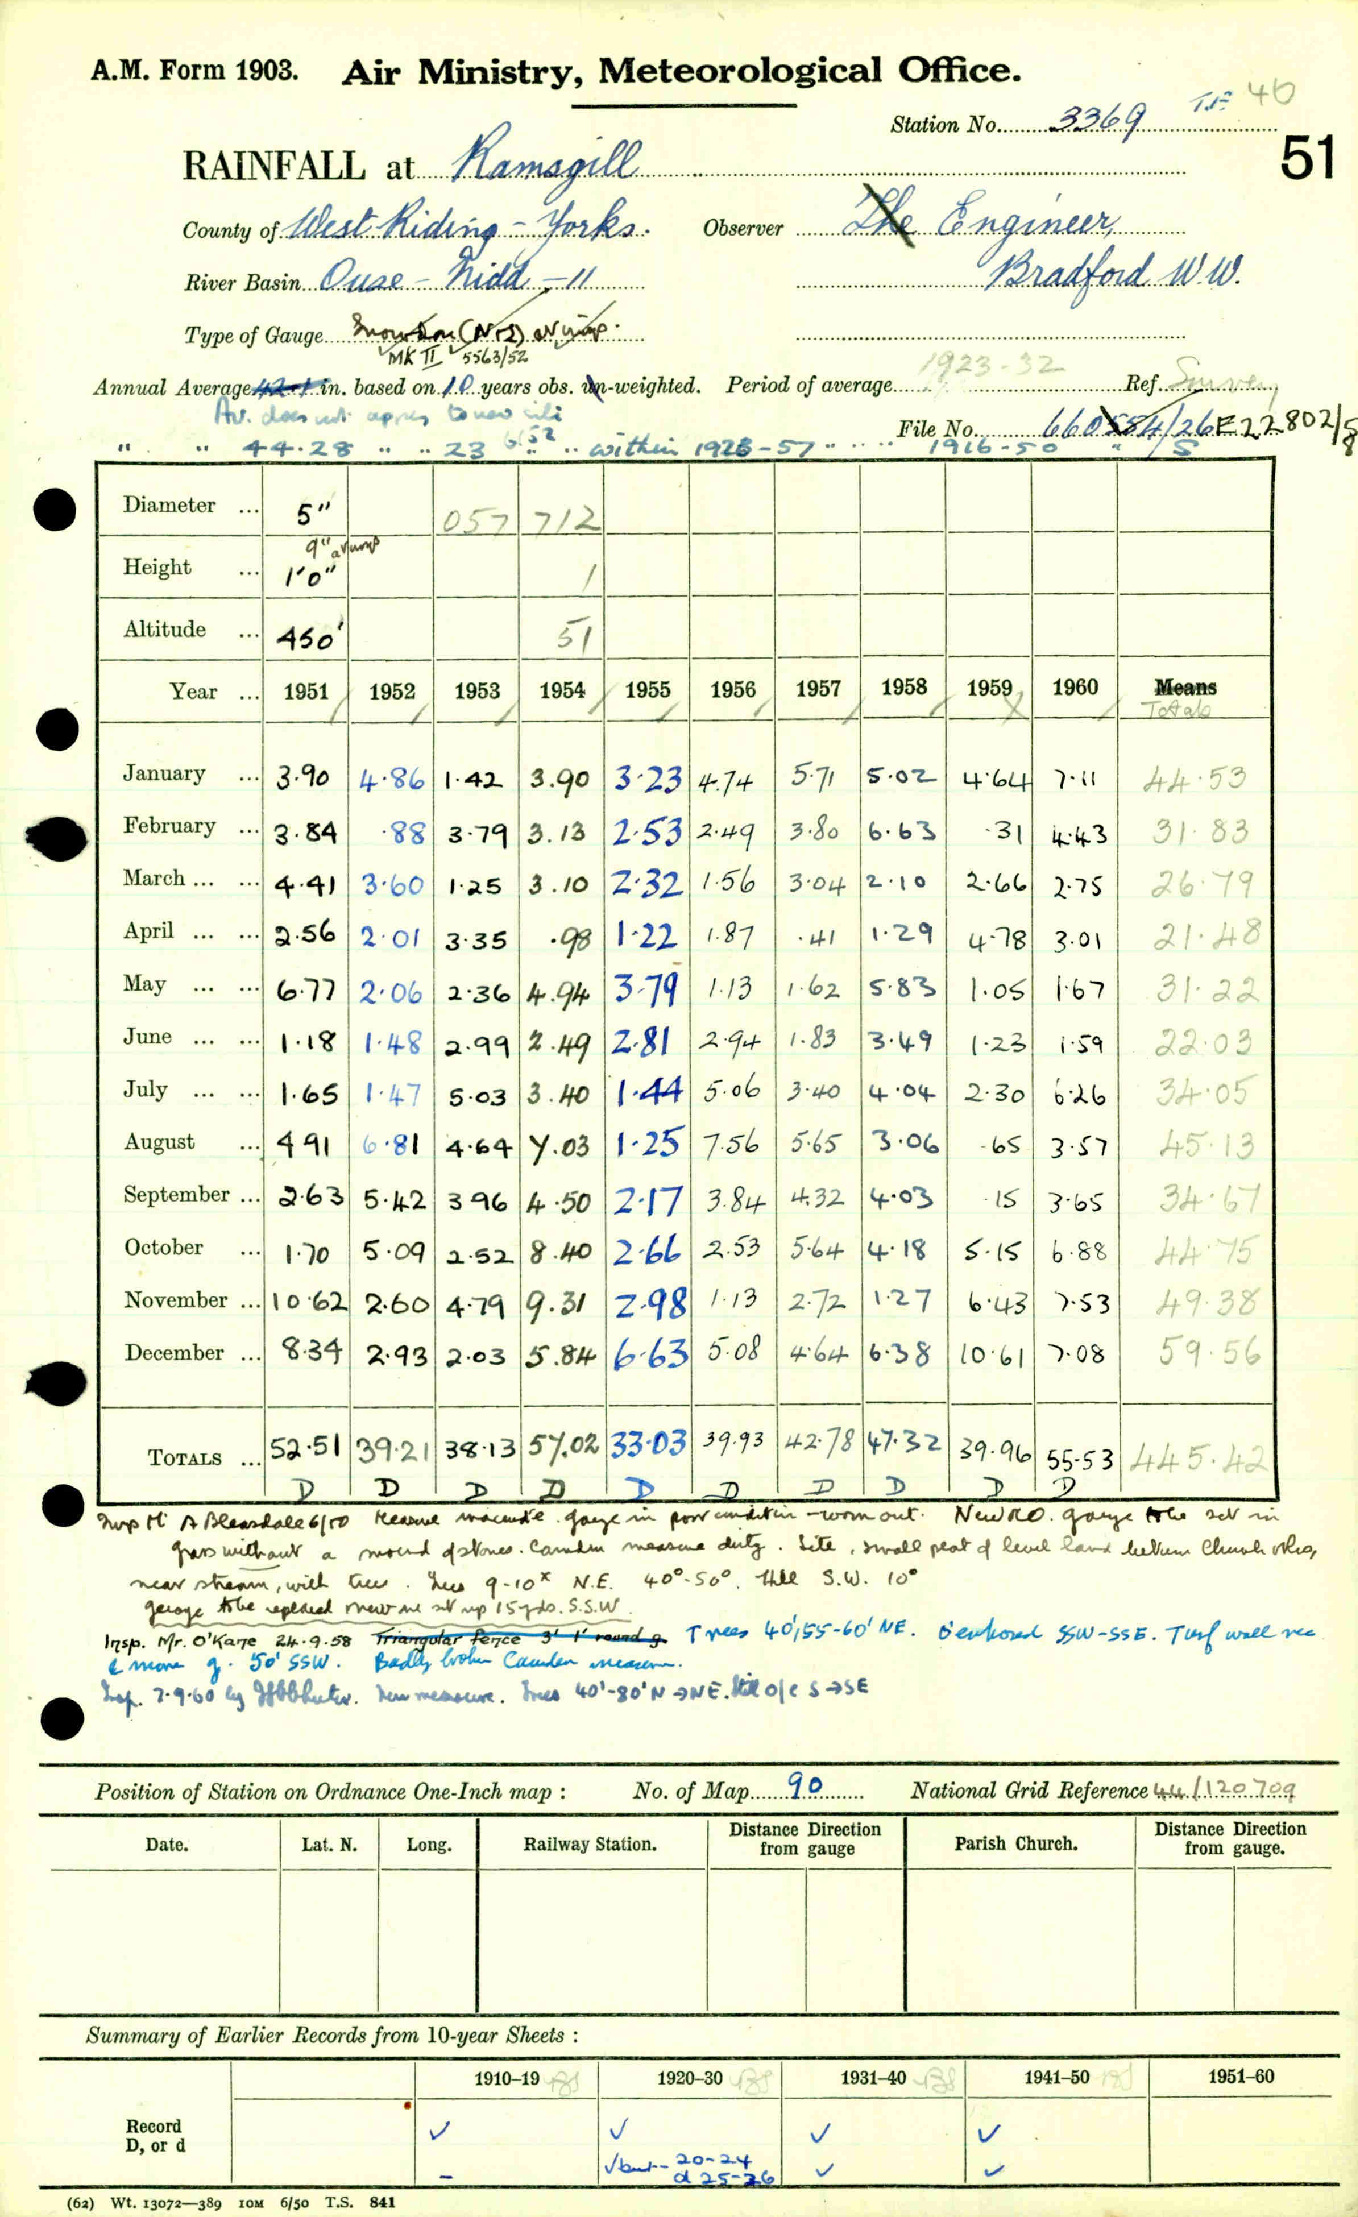 A.M. Form 1903. Air Ministry, Meteorological Office.
Station No. 3369 40
51
RAINFALL at Ramsgill
County of West Riding - Yorks. Observer The Engineer,
River Basin Ouse - Nidd - 11 Bradford W W.
Type of Gauge
MK II 5563/52
Annual Average 42.1 in. based on 10 years obs. un-weighted. Period of average 1923-32 Ref.
Av. does not apply to new site 6/52
File No. E22802/58
" " 44.28 " " 23 " " within 1923-57 " " " 1916-50 " S
Diameter ... 5" 057 712
Height ... 9" 1'0" 1
Altitude ... 450' 51
Year ... 1951 1952 1953 1954 1955 1956 1957 1958 1959 1960 Means
Totals
January ... 3.90 4.86 1.42 3.90 3.23 4.74 5.71 5.02 4.64 7.11 44.53
February ... 3.84 .88 3.79 3.13 2.53 2.49 3.80 6.63 .31 4.43 31.83
March ... ... 4.41 3.60 1.25 3.10 2.32 1.56 3.04 2.10 2.66 2.75 26.79
April ... ... 2.56 2.01 3.35 .98 1.22 1.87 .41 1.29 4.78 3.01 21.48
May ... ... 6.77 2.06 2.36 4.94 3.79 1.13 1.62 5.83 1.05 1.67 31.22
June ... ... 1.18 1.48 2.99 2.49 2.81 2.94 1.83 3.49 1.23 1.59 22.03
July ... ... 1.65 1.47 5.03 3.40 1.44 5.06 3.40 4.04 2.30 6.26 34.05
August ... 4 91 6.81 4.64 7.03 1.25 7.56 5.65 3.06 .65 3.57 45.13
September ... 2.63 5.42 3 96 4.50 2.17 3.84 4.32 4.03 .15 3.65 34.67
October ... 1.70 5.09 2.52 8.40 2.66 2.53 5.64 4.18 5.15 6.88 44.75
November ... 10.62 2.60 4.79 9.31 2.98 1.13 2.72 1.27 6.43 7.53 49.38
December ... 8.34 2.93 2.03 5.84 6.63 5.08 4.64 6.38 10.61 7.08 59.56
TOTALS ... 52.51 39.21 38.13 57.02 33.03 39.93 42.78 47.32 39.96 55.53 445.42
D D D D D D D D D D
Insp Mr A Bleasdale 6/50 gauge in poor condition - worn out. New M.O. gauge to be set in
grass without a mound of stones. Camden measure dirty. Site, small plot of level land between Church
near stream, with trees. Trees 9-10 N.E. 40°-50°. Hill S.W. 10°
gauge to be replaced new one set up 15 yds. S.S.W.
Insp. Mr. O'Kane 24.9.58 Triangular fence 3' 1' round g. Trees 40', 55-60' NE. SSW-SSE. Turf wall rec
50' SSW. Badly broken Camden measure.
Insp. 7.9.60 by New measure. Trees 40'-80' N→NE. Still o/c S→SE
Position of Station on Ordnance One-Inch map : No. of Map 90 National Grid Reference 44/120709
Date. Lat. N. Long. Railway Station. Distance from gauge Direction Parish Church. Distance from gauge. Direction
Summary of Earlier Records from 10-year Sheets :
1910–19 1920–30 1931–40 1941–50 1951–60
Record ✓ ✓ ✓ ✓
D, or d - ✓ but 20-24 ✓ ✓
d 25-26
(62) Wt. 13072—389 10M 6/50 T.S. 841